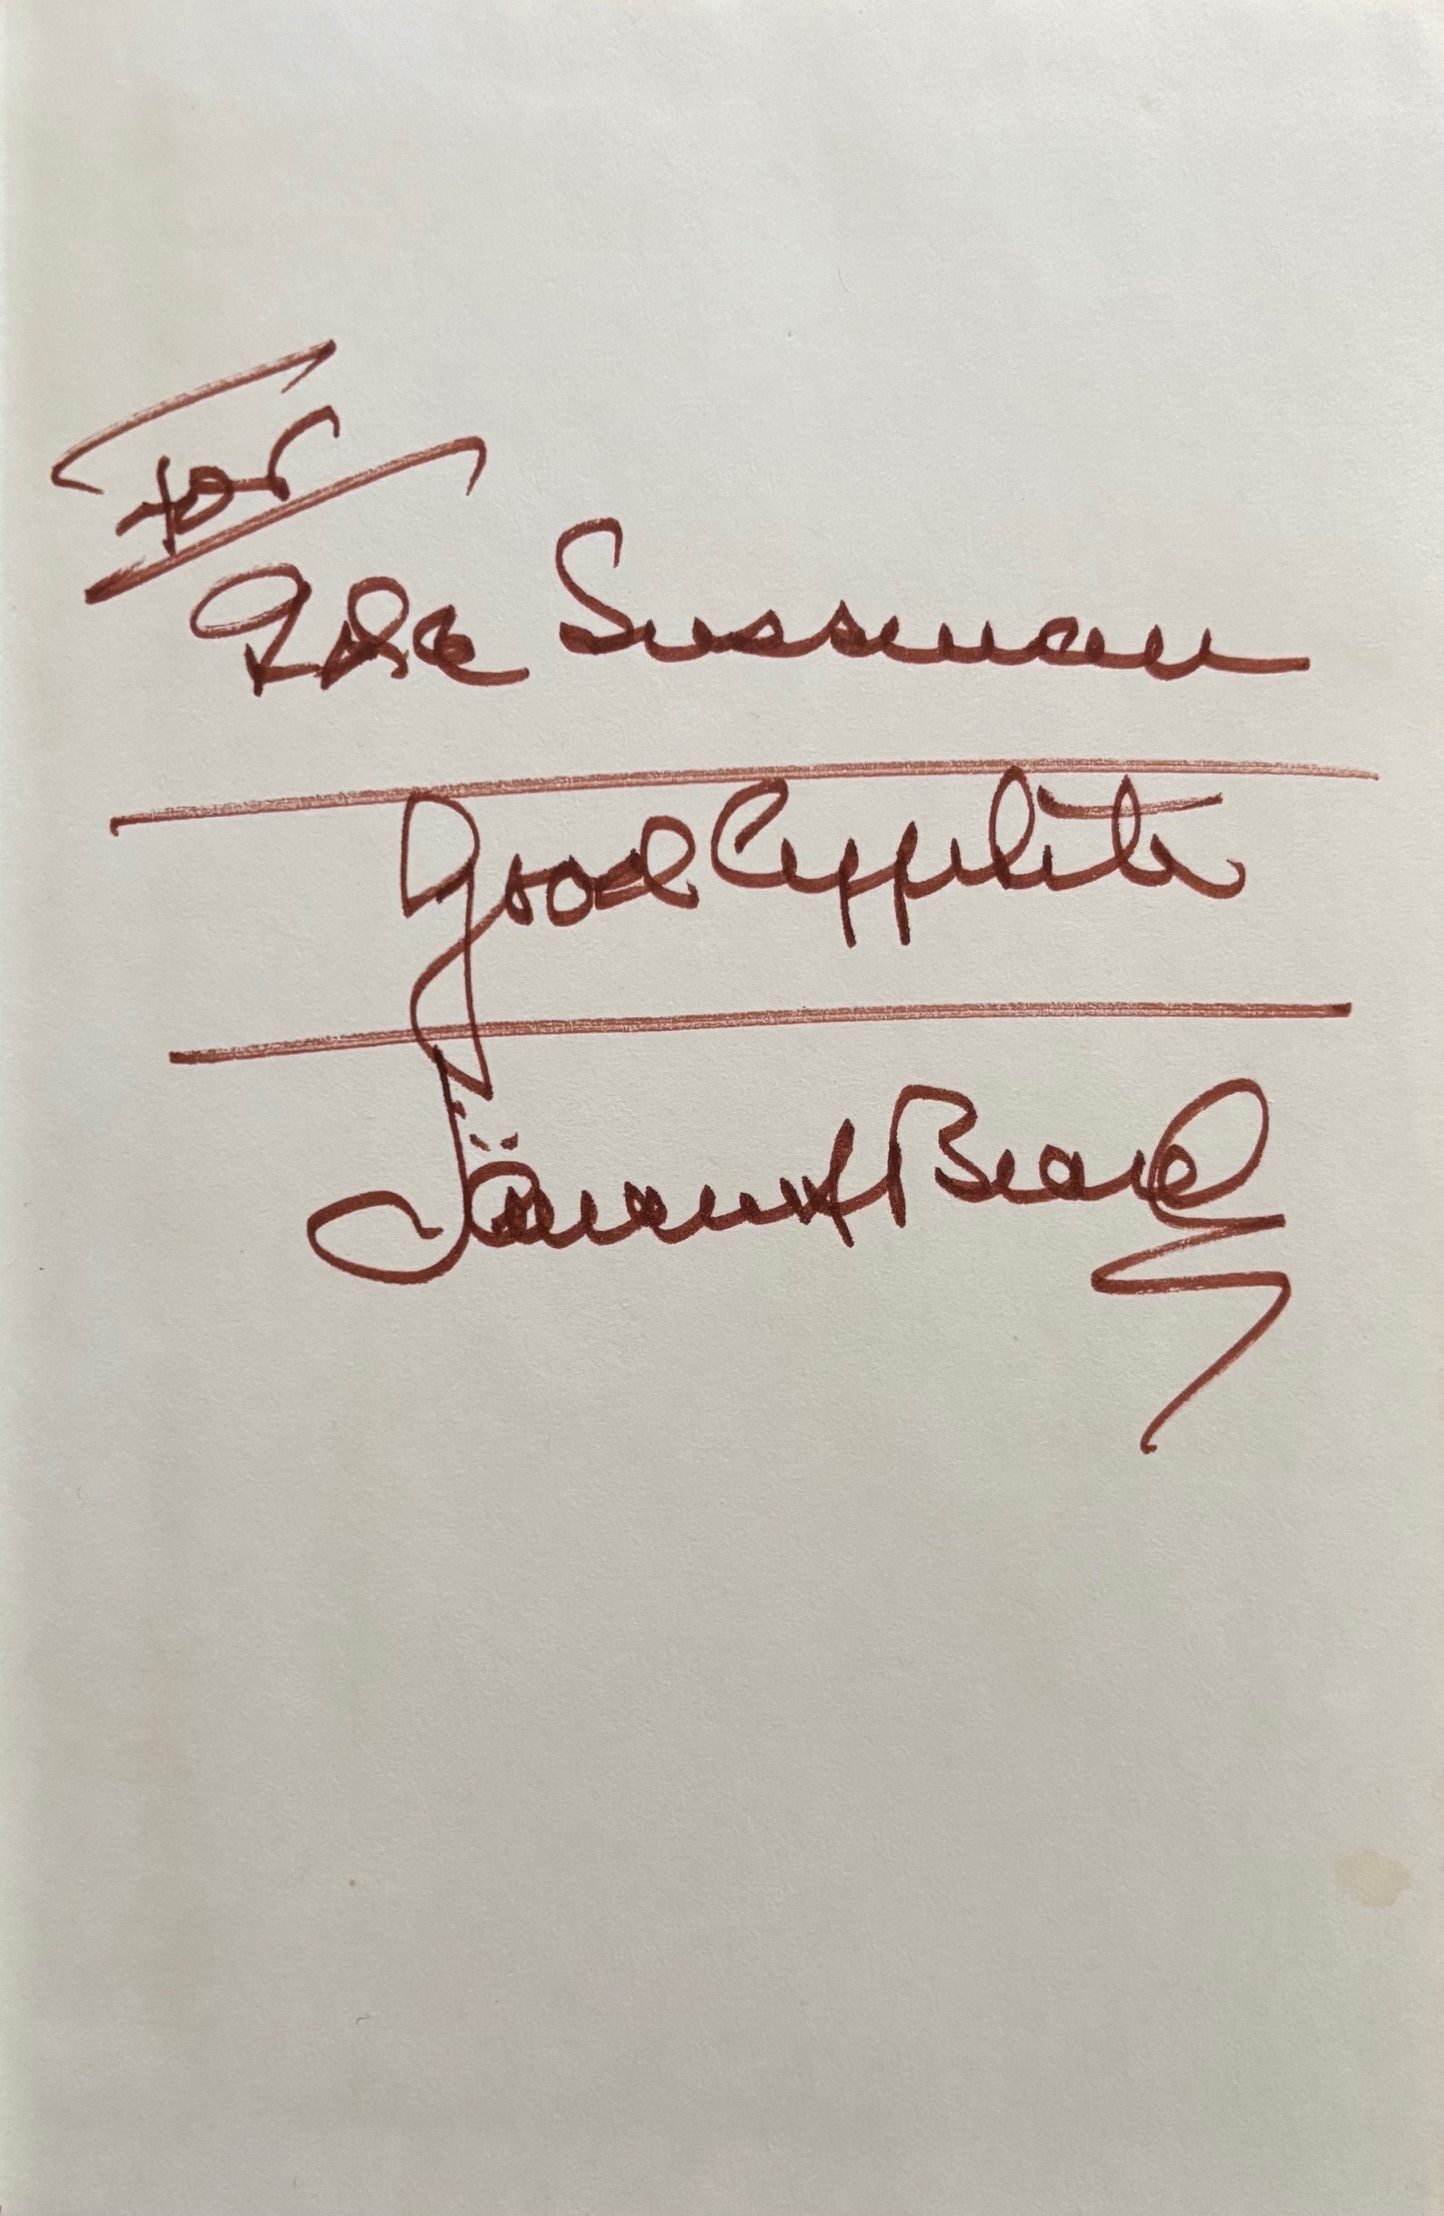 For
Ida Sussman
Good Appetite
James A Beard